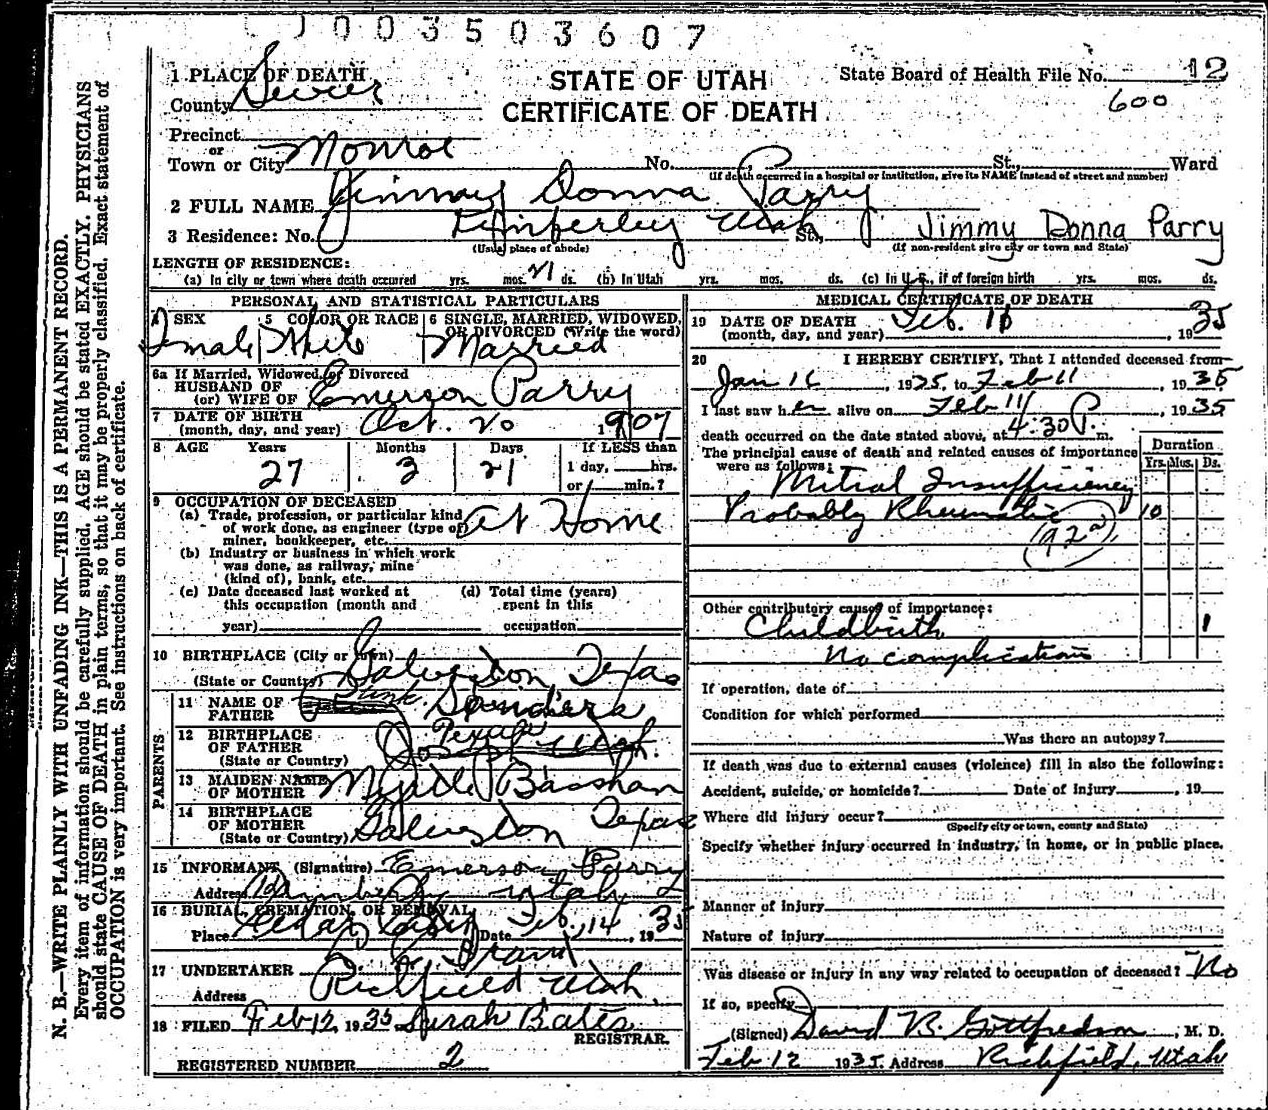 003503607
1 PLACE OF DEATH
County Sevier
STATE OF UTAH
CERTIFICATE OF DEATH
State Board of Health File No. 12
600
Precinct
or
Town or City Monroe No. St., Ward
(If death occurred in a hospital or institution, give its NAME instead of street and number)
2 FULL NAME Jimmy Donna Parry
3 Residence: No. Kimberley Utah St., Jimmy Donna Parry
(Usual place of abode) (If non-resident give city or town and State)
LENGTH OF RESIDENCE:
(a) In city or town where death occured yrs. mos. 21 ds. (b) In Utah yrs. mos. ds. (c) In U. S., if of foreign birth yrs. mos. ds.
PERSONAL AND STATISTICAL PARTICULARS
4 SEX 5 COLOR OR RACE 6 SINGLE, MARRIED, WIDOWED, OR DIVORCED (Write the word)
Female White Married
6a If Married, Widowed, or Divorced
HUSBAND OF
(or) WIFE OF Emerson Parry
7 DATE OF BIRTH
(month, day, and year) Oct. 20 1907
8 AGE Years Months Days If LESS than
27 3 21 1 day, hrs.
or min.?
9 OCCUPATION OF DECEASED
(a) Trade, profession, or particular kind
of work done, as engineer (type of
miner, bookkeeper, etc. At Home
(b) Industry or business in which work
was done, as railway, mine
(kind of), bank, etc.
(c) Date deceased last worked at
this occupation (month and
year)
(d) Total time (years)
spent in this
occupation
10 BIRTHPLACE (City or town)
(State or Country) Galveston Texas
PARENTS
11 NAME OF
FATHER Sanders
12 BIRTHPLACE
OF FATHER
(State or Country) Texas
13 MAIDEN NAME
OF MOTHER Myrtle Basshan
14 BIRTHPLACE
OF MOTHER
(State or Country) Galveston Texas
15 INFORMANT (Signature) Emerson Parry
Address Kimberly Utah
16 BURIAL, CREMATION, OR REMOVAL
Place Cedar City Date Feb. 14, 1935
17 UNDERTAKER
Address Richfield Utah
18 FILED Feb 12, 1935 Sarah Bates
REGISTRAR.
REGISTERED NUMBER 2
MEDICAL CERTIFICATE OF DEATH
19 DATE OF DEATH
(month, day, and year) Feb. 11, 1935
20 I HEREBY CERTIFY, That I attended deceased from
Jan 16, 1935, to Feb 11, 1935
I last saw her alive on Feb 11, 1935
death occurred on the date stated above, at 4:30 P. m.
The principal cause of death and related causes of importance
were as follows:
Duration
Yrs. Mos. Ds.
Mitral Insufficiency
Probably Rheumatic 10
(92a)
Other contributory causes of importance:
Childbirth 1
No complications
If operation, date of
Condition for which performed
Was there an autopsy?
If death was due to external causes (violence) fill in also the following:
Accident, suicide, or homicide? Date of injury , 19
Where did injury occur?
(Specify city or town, county and State)
Specify whether injury occurred in industry, in home, or in public place.
Manner of injury
Nature of injury
Was disease or injury in any way related to occupation of deceased? No
If so, specify
(Signed) David R. Gottfredson, M. D.
Feb 12 1935 Address Richfield, Utah
N. B.—WRITE PLAINLY WITH UNFADING INK—THIS IS A PERMANENT RECORD.
Every item of information should be carefully supplied. AGE should be stated EXACTLY. PHYSICIANS
should state CAUSE OF DEATH in plain terms, so that it may be properly classified. Exact statement of
OCCUPATION is very important. See instructions on back of certificate.